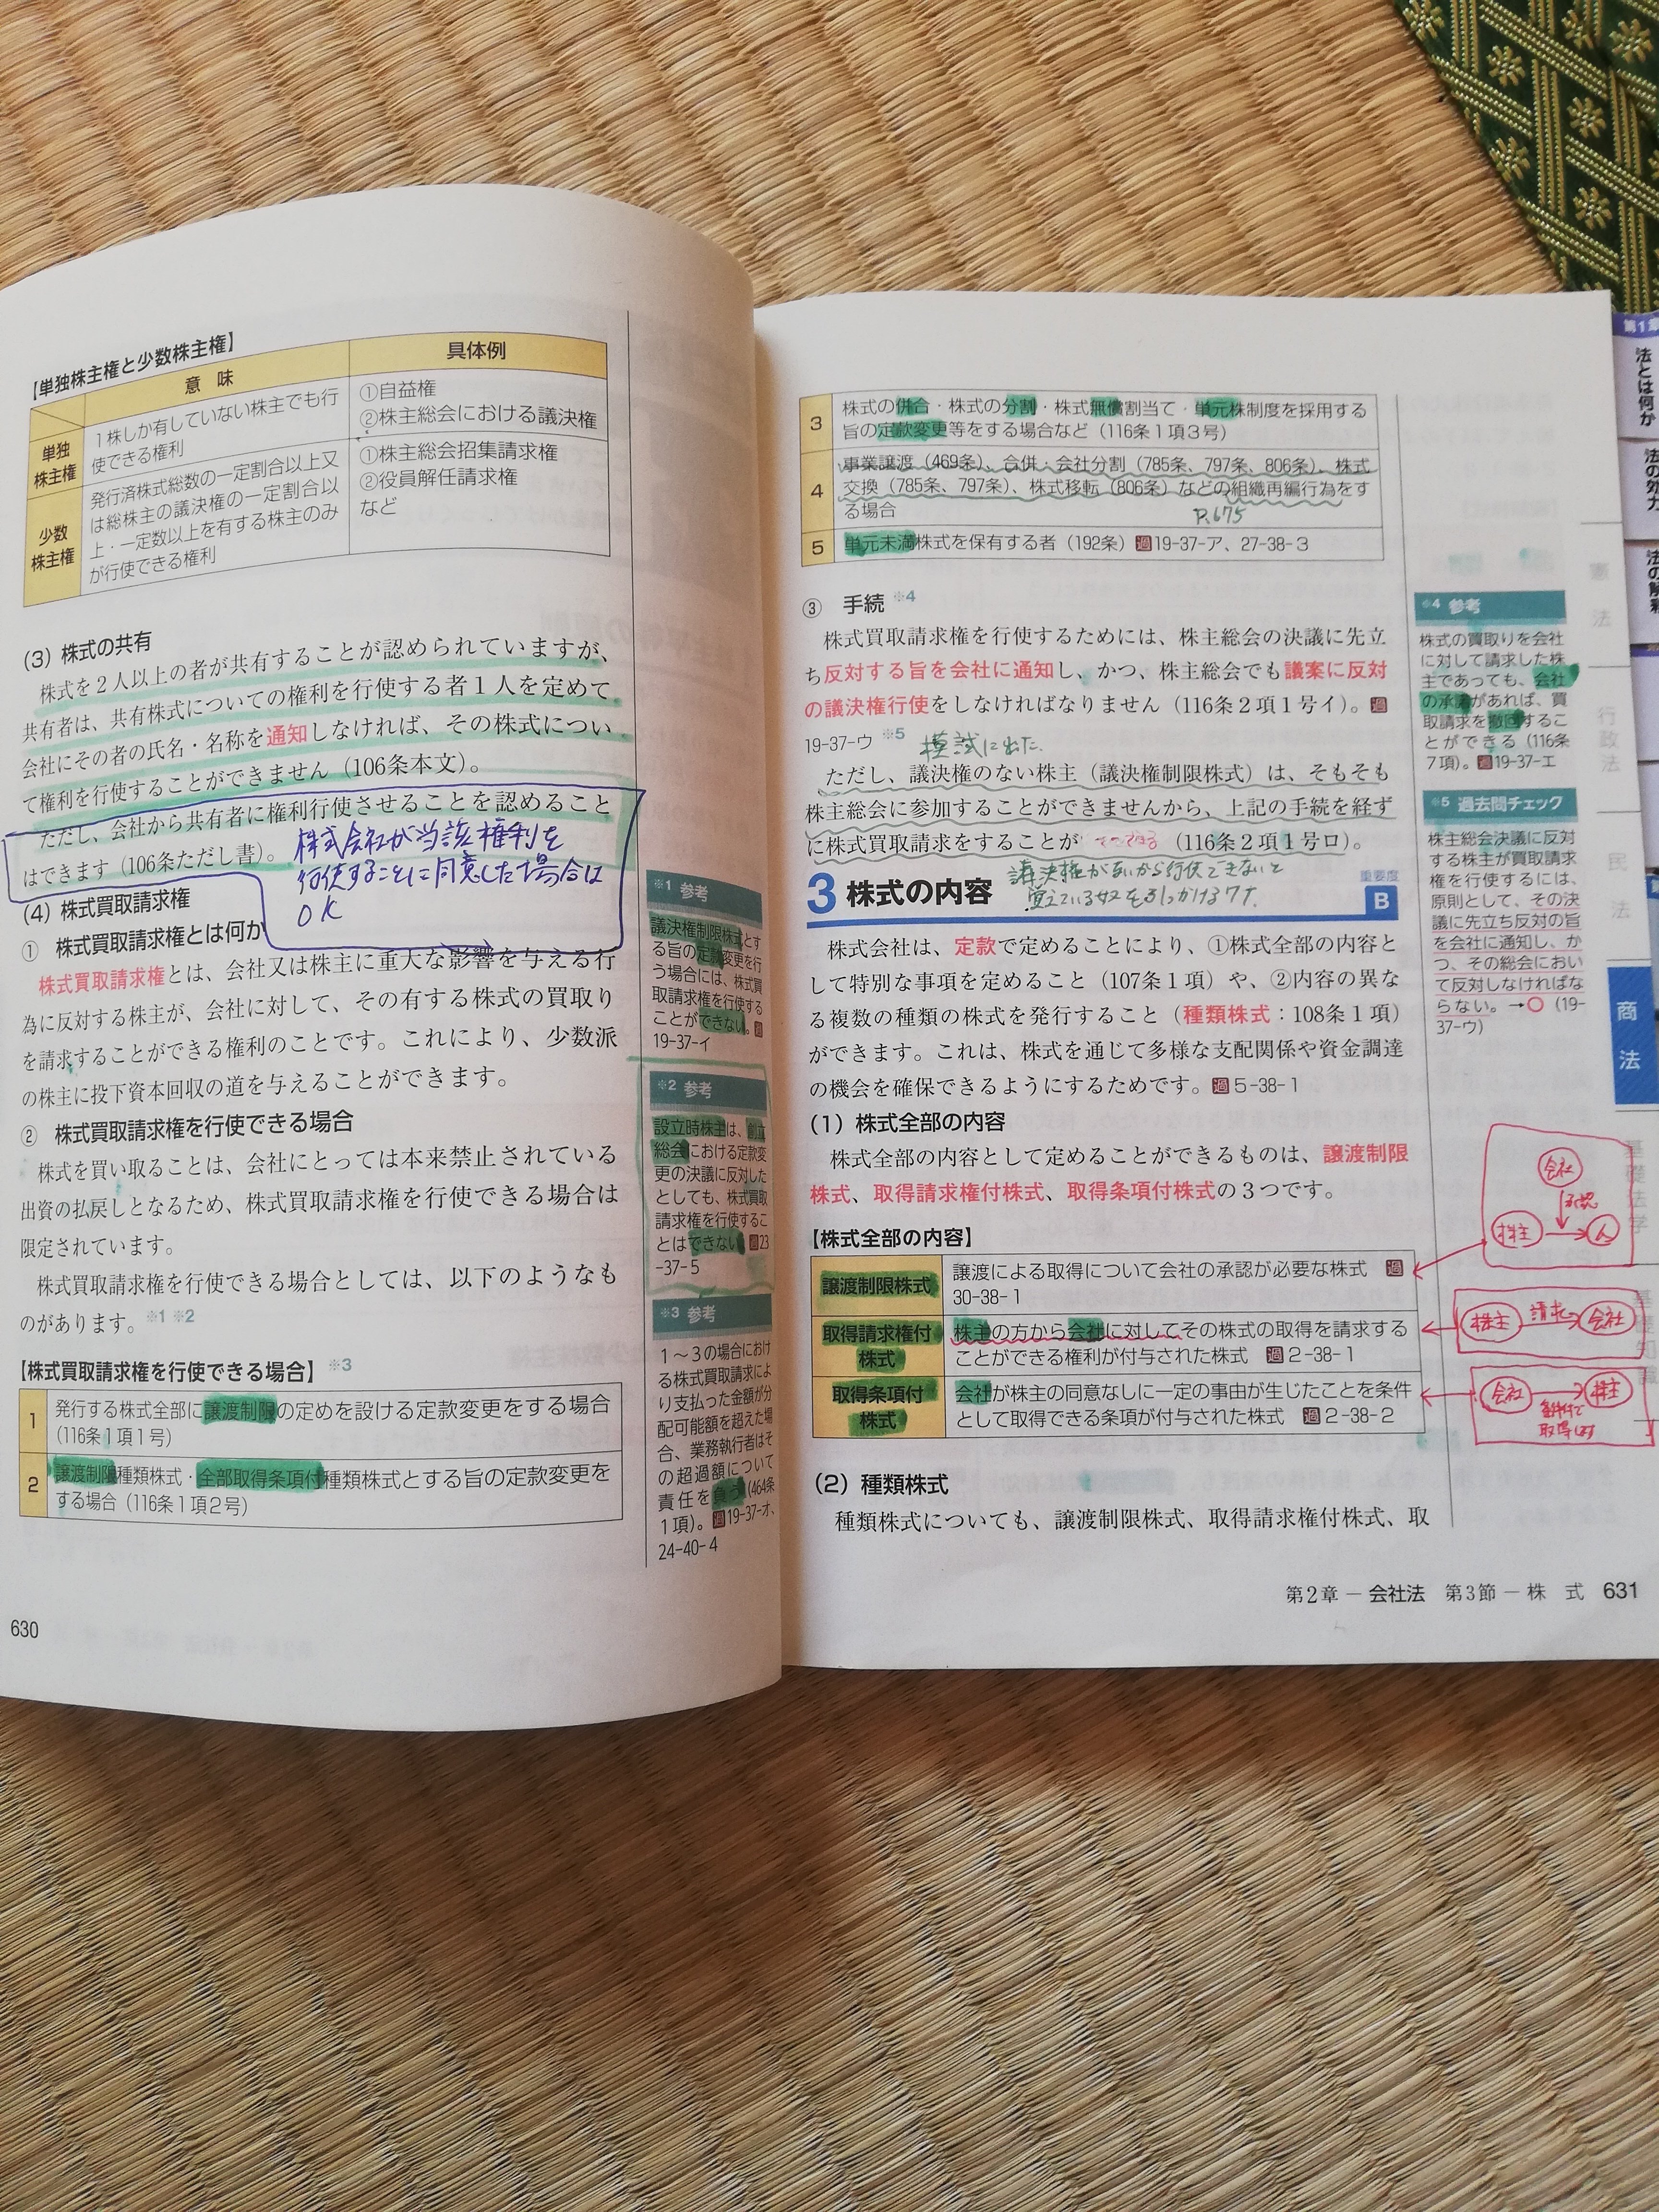 【単独株主権と少数株主権】
意 味
具体例
単独株主権
1株しか有していない株主でも行
使できる権利
①自益権
②株主総会における議決権
少数株主権
発行済株式総数の一定割合以上又
は総株主の議決権の一定割合以
上・一定数以上を有する株主のみ
が行使できる権利
①株主総会招集請求権
②役員解任請求権
など
(3) 株式の共有
株式を2人以上の者が共有することが認められていますが、
共有者は、共有株式についての権利を行使する者1人を定めて、
会社にその者の氏名・名称を通知しなければ、その株式につい
て権利を行使することができません(106条本文)。
ただし、会社から共有者に権利行使させることを認めること
はできます(106条ただし書)。
株式会社が当該権利を
行使することに同意した場合は
OK
(4) 株式買取請求権
① 株式買取請求権とは何か
株式買取請求権とは、会社又は株主に重大な影響を与える行
為に反対する株主が、会社に対して、その有する株式の買取り
を請求することができる権利のことです。これにより、少数派
の株主に投下資本回収の道を与えることができます。
② 株式買取請求権を行使できる場合
株式を買い取ることは、会社にとっては本来禁止されている
出資の払戻しとなるため、株式買取請求権を行使できる場合は
限定されています。
株式買取請求権を行使できる場合としては、以下のようなも
のがあります。※1 ※2
【株式買取請求権を行使できる場合】※3
1
発行する株式全部に譲渡制限の定めを設ける定款変更をする場合
(116条1項1号)
2
譲渡制限種類株式・全部取得条項付種類株式とする旨の定款変更を
する場合(116条1項2号)
630
※1 参考
議決権制限株式とす
る旨の定款変更を行
う場合には、株式買
取請求権を行使する
ことができない。過
19-37-イ
※2 参考
設立時株主は、創立
総会における定款変
更の決議に反対した
としても、株式買取
請求権を行使するこ
とはできない。過23
-37-5
※3 参考
1～3の場合におけ
る株式買取請求によ
り支払った金額が分
配可能額を超えた場
合、業務執行者はそ
の超過額について
責任を負う(464条
1項)。過19-37-オ、
24-40-4
3
株式の併合・株式の分割・株式無償割当て・単元株制度を採用する
旨の定款変更等をする場合など(116条1項3号)
4
事業譲渡(469条)、合併・会社分割(785条、797条、806条)、株式
交換(785条、797条)、株式移転(806条)などの組織再編行為をす
る場合
P.675
5
単元未満株式を保有する者(192条)過19-37-ア、27-38-3
③ 手続※4
株式買取請求権を行使するためには、株主総会の決議に先立
ち反対する旨を会社に通知し、かつ、株主総会でも議案に反対
の議決権行使をしなければなりません(116条2項1号イ)。過
19-37-ウ※5 模試に出た.
ただし、議決権のない株主(議決権制限株式)は、そもそも
株主総会に参加することができませんから、上記の手続を経ず
に株式買取請求をすることが (116条2項1号ロ)。
議決権がないから行使できないと
3 株式の内容
重要度
B
株式会社は、定款で定めることにより、①株式全部の内容と
して特別な事項を定めること(107条1項)や、②内容の異な
る複数の種類の株式を発行すること(種類株式:108条1項)
ができます。これは、株式を通じて多様な支配関係や資金調達
の機会を確保できるようにするためです。過5-38-1
(1) 株式全部の内容
株式全部の内容として定めることができるものは、譲渡制限
株式、取得請求権付株式、取得条項付株式の3つです。
【株式全部の内容】
譲渡制限株式
譲渡による取得について会社の承認が必要な株式 過
30-38-1
取得請求権付
株式
株主の方から会社に対してその株式の取得を請求する
ことができる権利が付与された株式 過2-38-1
取得条項付
株式
会社が株主の同意なしに一定の事由が生じたことを条件
として取得できる条項が付与された株式 過2-38-2
(2) 種類株式
種類株式についても、譲渡制限株式、取得請求権付株式、取
第2章－会社法 第3節－株 式 631
※4 参考
株式の買取りを会社
に対して請求した株
主であっても、会社
の承諾があれば、買
取請求を撤回するこ
とができる(116条
7項)。過19-37-エ
※5 過去問チェック
株主総会決議に反対
する株主が買取請求
権を行使するには、
原則として、その決
議に先立ち反対の旨
を会社に通知し、か
つ、その総会におい
て反対しなければな
らない。→○(19-
37-ウ)
会社
承認
株主
人
株主
請求
会社
会社
株主
条件付で
取得します
第1章
法とは何か
法の効力
法の解釈
憲法
行政法
民法
商法
基礎法学
基礎知識